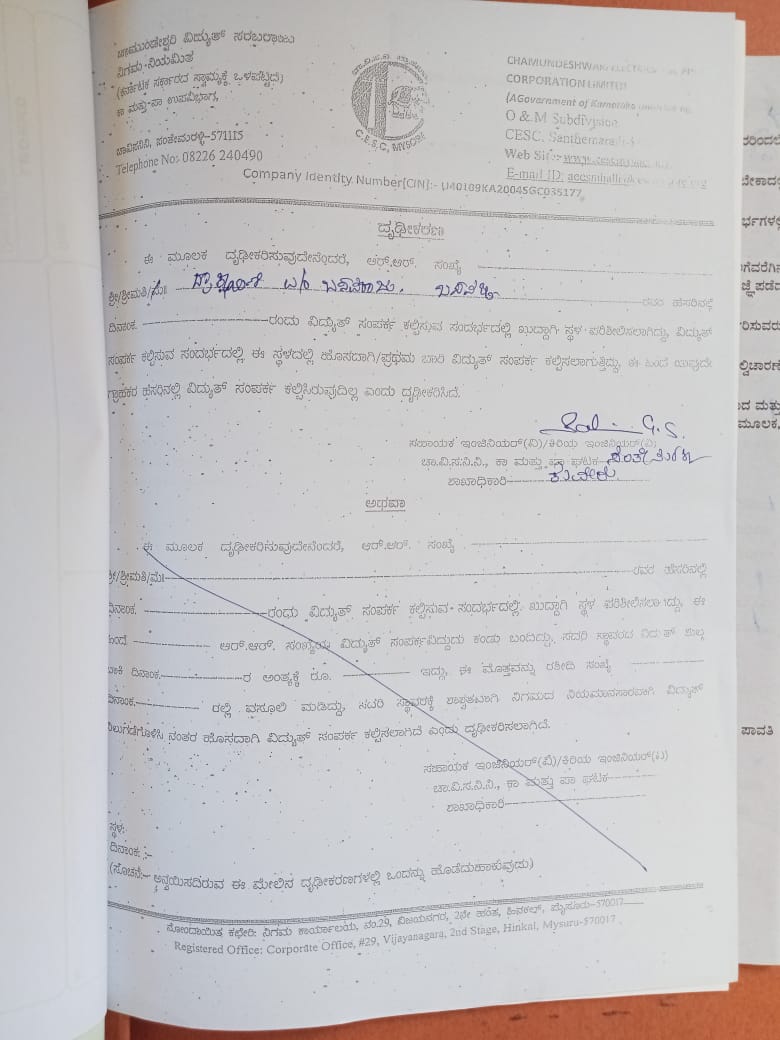 ಚಾಮುಂಡೇಶ್ವರಿ ವಿದ್ಯುತ್ ಸರಬರಾಜು
ನಿಗಮ ನಿಯಮಿತ
(ಕರ್ನಾಟಕ ಸರ್ಕಾರದ ಸ್ವಾಮ್ಯಕ್ಕೆ ಒಳಪಟ್ಟಿದೆ)
ಕಾ ಮತ್ತು ಪಾ ಉಪವಿಭಾಗ,
ಚಾವಿಸನಿನಿ, ಸಂತೇಮರಳ್ಳಿ-571115
Telephone No: 08226 240490
C.E.S.C, MYSORE
CHAMUNDESHWARI
CORPORATION LIMITED
(AGovernment of Karnataka
O & M Subdivision
CESC, Santhemara
Web Sit:-
E-mail ID:
Company Identity Number[CIN]:- U40109KA2004SGC035177
ದೃಢೀಕರಣ
ಈ ಮೂಲಕ ದೃಢೀಕರಿಸುವುದೇನೆಂದರೆ, ಆರ್.ಆರ್. ಸಂಖ್ಯೆ
ಶ್ರೀ/ಶ್ರೀಮತಿ/ಮೆ ರವರ ಹೆಸರಿನಲ್ಲಿ
ದಿನಾಂಕ. ರಂದು ವಿದ್ಯುತ್ ಸಂಪರ್ಕ ಕಲ್ಪಿಸುವ ಸಂದರ್ಭದಲ್ಲಿ ಖುದ್ದಾಗಿ ಸ್ಥಳ ಪರಿಶೀಲಿಸಲಾಗಿದ್ದು, ವಿದ್ಯುತ್
ಸಂಪರ್ಕ ಕಲ್ಪಿಸುವ ಸಂದರ್ಭದಲ್ಲಿ ಈ ಸ್ಥಳದಲ್ಲಿ ಹೊಸದಾಗಿ/ಪ್ರಥಮ ಬಾರಿ ವಿದ್ಯುತ್ ಸಂಪರ್ಕ ಕಲ್ಪಿಸಲಾಗುತ್ತಿದ್ದು, ಈ ಹಿಂದೆ ಯಾವುದೇ
ಗ್ರಾಹಕರ ಹೆಸರಿನಲ್ಲಿ ವಿದ್ಯುತ್ ಸಂಪರ್ಕ ಕಲ್ಪಿಸಿರುವುದಿಲ್ಲ ಎಂದು ದೃಢೀಕರಿಸಿದೆ.
G.S.
ಸಹಾಯಕ ಇಂಜಿನಿಯರ್(ವಿ)/ಕಿರಿಯ ಇಂಜಿನಿಯರ್(ವಿ)
ಚಾ.ವಿ.ಸ.ನಿ.ನಿ., ಕಾ ಮತ್ತು ಪಾ ಘಟಕ
ಶಾಖಾಧಿಕಾರಿ ಕುದೇರು
ಅಥವಾ
ಈ ಮೂಲಕ ದೃಢೀಕರಿಸುವುದೇನೆಂದರೆ, ಆರ್.ಆರ್. ಸಂಖ್ಯೆ
ಶ್ರೀ/ಶ್ರೀಮತಿ/ಮೆ ರವರ ಹೆಸರಿನಲ್ಲಿ
ದಿನಾಂಕ. ರಂದು ವಿದ್ಯುತ್ ಸಂಪರ್ಕ ಕಲ್ಪಿಸುವ ಸಂದರ್ಭದಲ್ಲಿ ಖುದ್ದಾಗಿ ಸ್ಥಳ ಪರಿಶೀಲಿಸಲಾಗಿದ್ದು, ಈ
ಹಿಂದೆ ಆರ್.ಆರ್. ಸಂಖ್ಯೆಯ ವಿದ್ಯುತ್ ಸಂಪರ್ಕವಿದ್ದುದು ಕಂಡು ಬಂದಿದ್ದು, ಸದರಿ ಸ್ಥಾವರದ ವಿದ್ಯುತ್ ಶುಲ್ಕ
ಬಾಕಿ ದಿನಾಂಕ. ರ ಅಂತ್ಯಕ್ಕೆ ರೂ. ಇದ್ದು, ಈ ಮೊತ್ತವನ್ನು ರಶೀದಿ ಸಂಖ್ಯೆ
ದಿನಾಂಕ. ರಲ್ಲಿ ವಸೂಲಿ ಮಾಡಿದ್ದು, ಸದರಿ ಸ್ಥಾವರಕ್ಕೆ ಶಾಶ್ವತವಾಗಿ ನಿಗಮದ ನಿಯಮಾನುಸಾರವಾಗಿ ವಿದ್ಯುತ್
ನಿಲುಗಡೆಗೊಳಿಸಿ ನಂತರ ಹೊಸದಾಗಿ ವಿದ್ಯುತ್ ಸಂಪರ್ಕ ಕಲ್ಪಿಸಲಾಗಿದೆ ಎಂದು ದೃಢೀಕರಿಸಲಾಗಿದೆ.
ಸಹಾಯಕ ಇಂಜಿನಿಯರ್(ವಿ)/ಕಿರಿಯ ಇಂಜಿನಿಯರ್(ವಿ)
ಚಾ.ವಿ.ಸ.ನಿ.ನಿ., ಕಾ ಮತ್ತು ಪಾ ಘಟಕ
ಶಾಖಾಧಿಕಾರಿ
ಸ್ಥಳ:
ದಿನಾಂಕ :-
(ಸೂಚನೆ:- ಅನ್ವಯಿಸದಿರುವ ಈ ಮೇಲಿನ ದೃಢೀಕರಣಗಳಲ್ಲಿ ಒಂದನ್ನು ಹೊಡೆದುಹಾಕುವುದು)
ನೋಂದಾಯಿತ ಕಛೇರಿ: ನಿಗಮ ಕಾರ್ಯಾಲಯ, ನಂ.29, ವಿಜಯನಗರ, 2ನೇ ಹಂತ, ಹಿನಕಲ್, ಮೈಸೂರು-570017
Registered Office: Corporate Office, #29, Vijayanagara, 2nd Stage, Hinkal, Mysuru-570017
ಮೂಲಕ,
ಪಾವತಿ